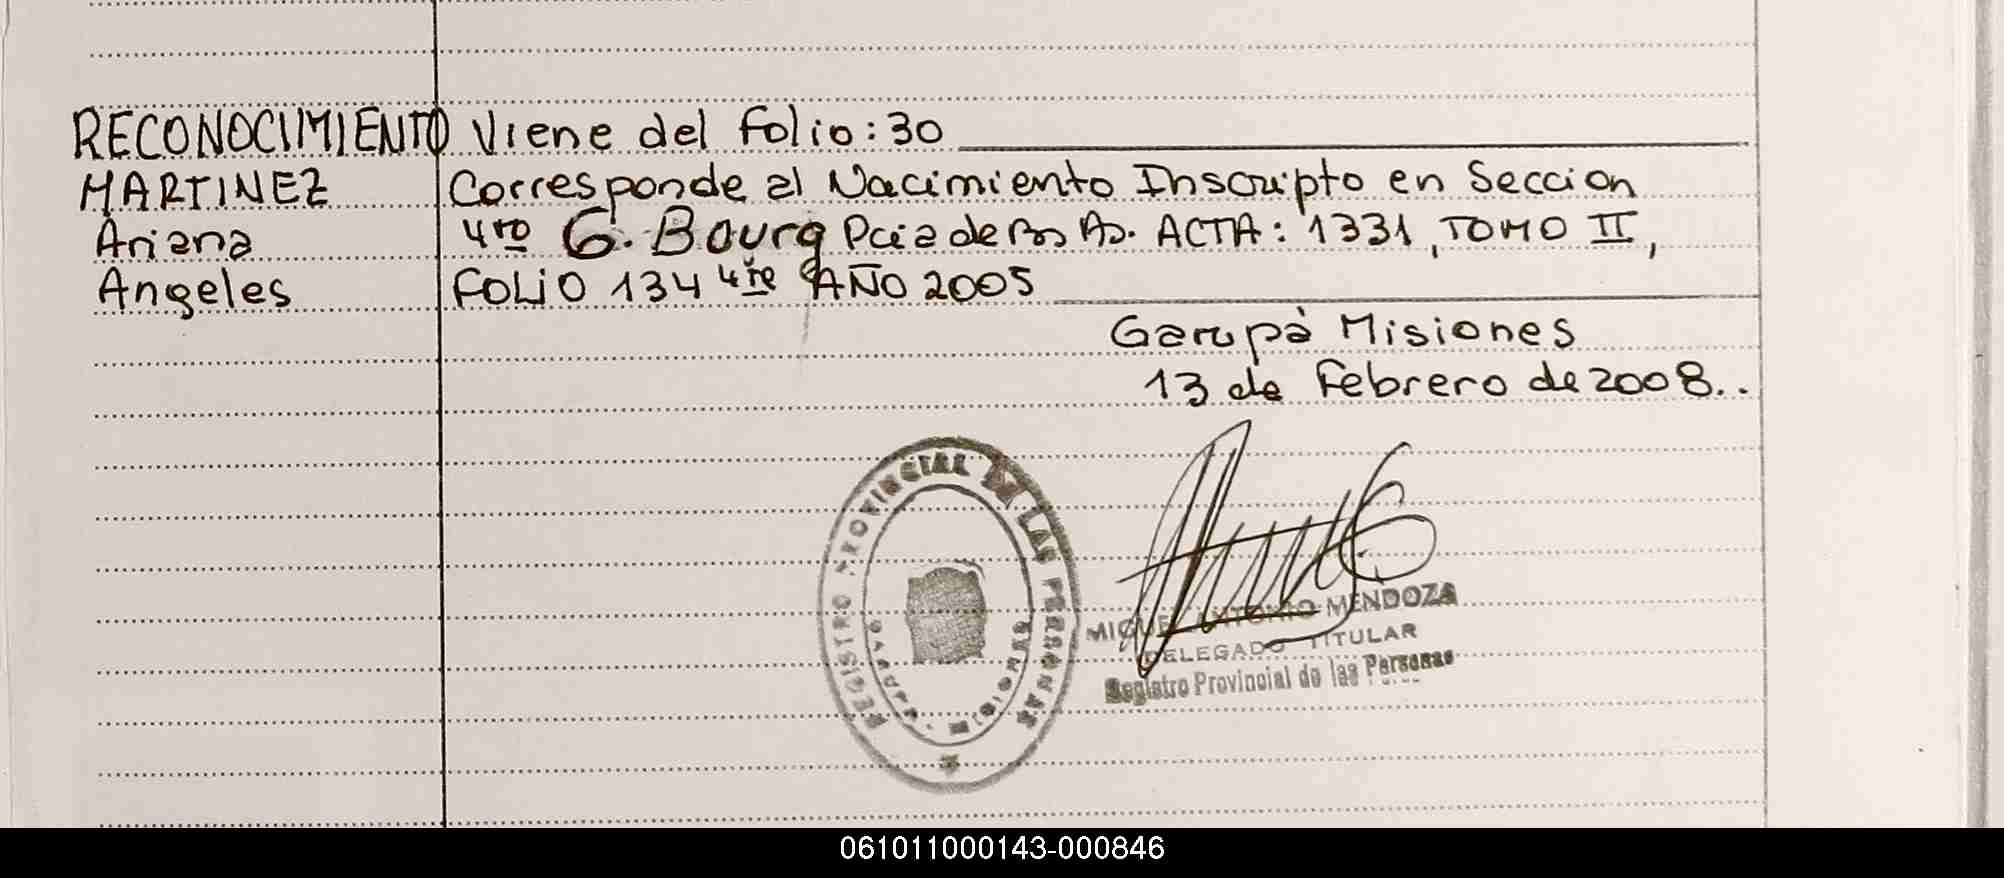 RECONOCIMIENTO Viene del Folio: 30
MARTINEZ Corresponde al Nacimiento Inscripto en Seccion
Ariana 4ro G. Bourg Pcia de Bs As. ACTA: 1331, TOMO II,
Angeles FOLIO 134 4re AÑO 2005
Garupà Misiones
13 de Febrero de 2008..
REGISTRO PROVINCIAL DE LAS PERSONAS
GARUPA - MISIONES
MIGUEL ANTONIO MENDOZA
DELEGADO TITULAR
Registro Provincial de las Personas
061011000143-000846